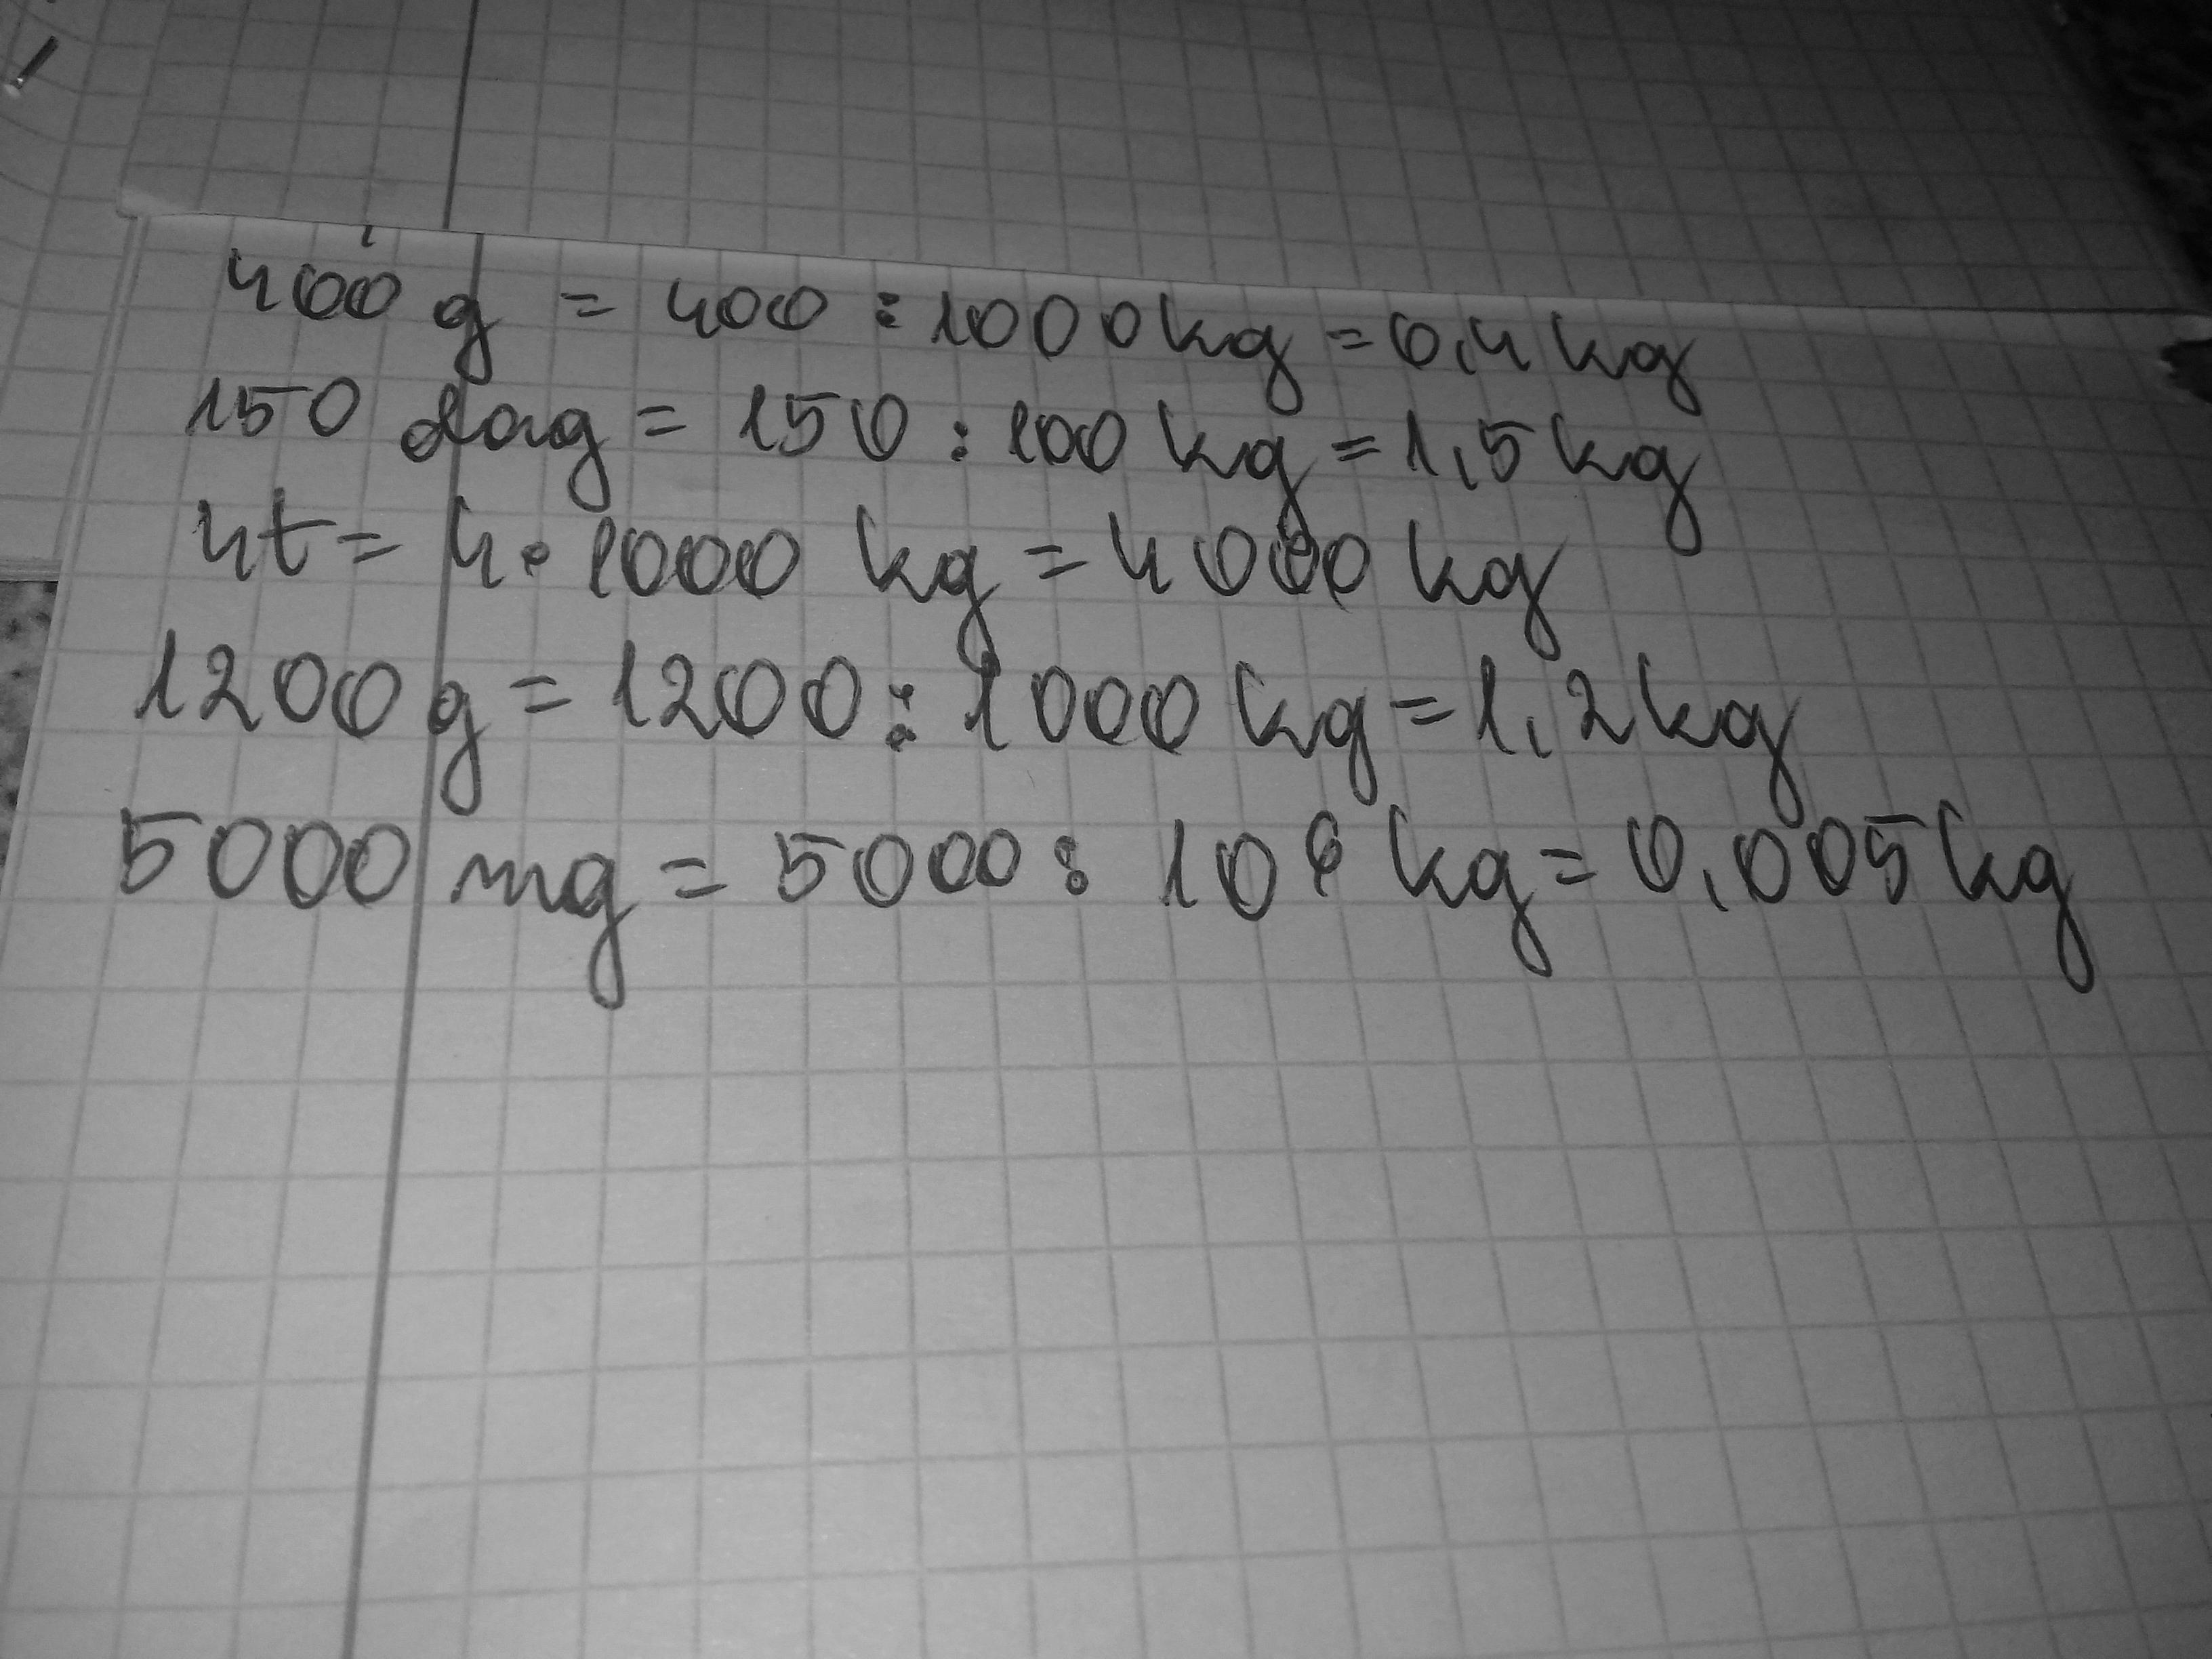 400 g = 400 : 1000 kg = 0,4 kg
150 dag = 150 : 100 kg = 1,5 kg
4t = 4 · 1000 kg = 4000 kg
1200 g = 1200 : 1000 kg = 1,2 kg
5000 mg = 5000 : 10⁶ kg = 0,005 kg